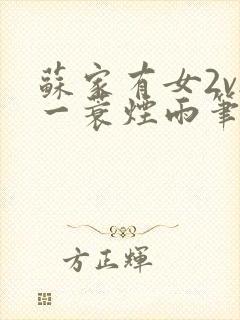 蘇家有女2v
一蓑煙雨筆
方正輝